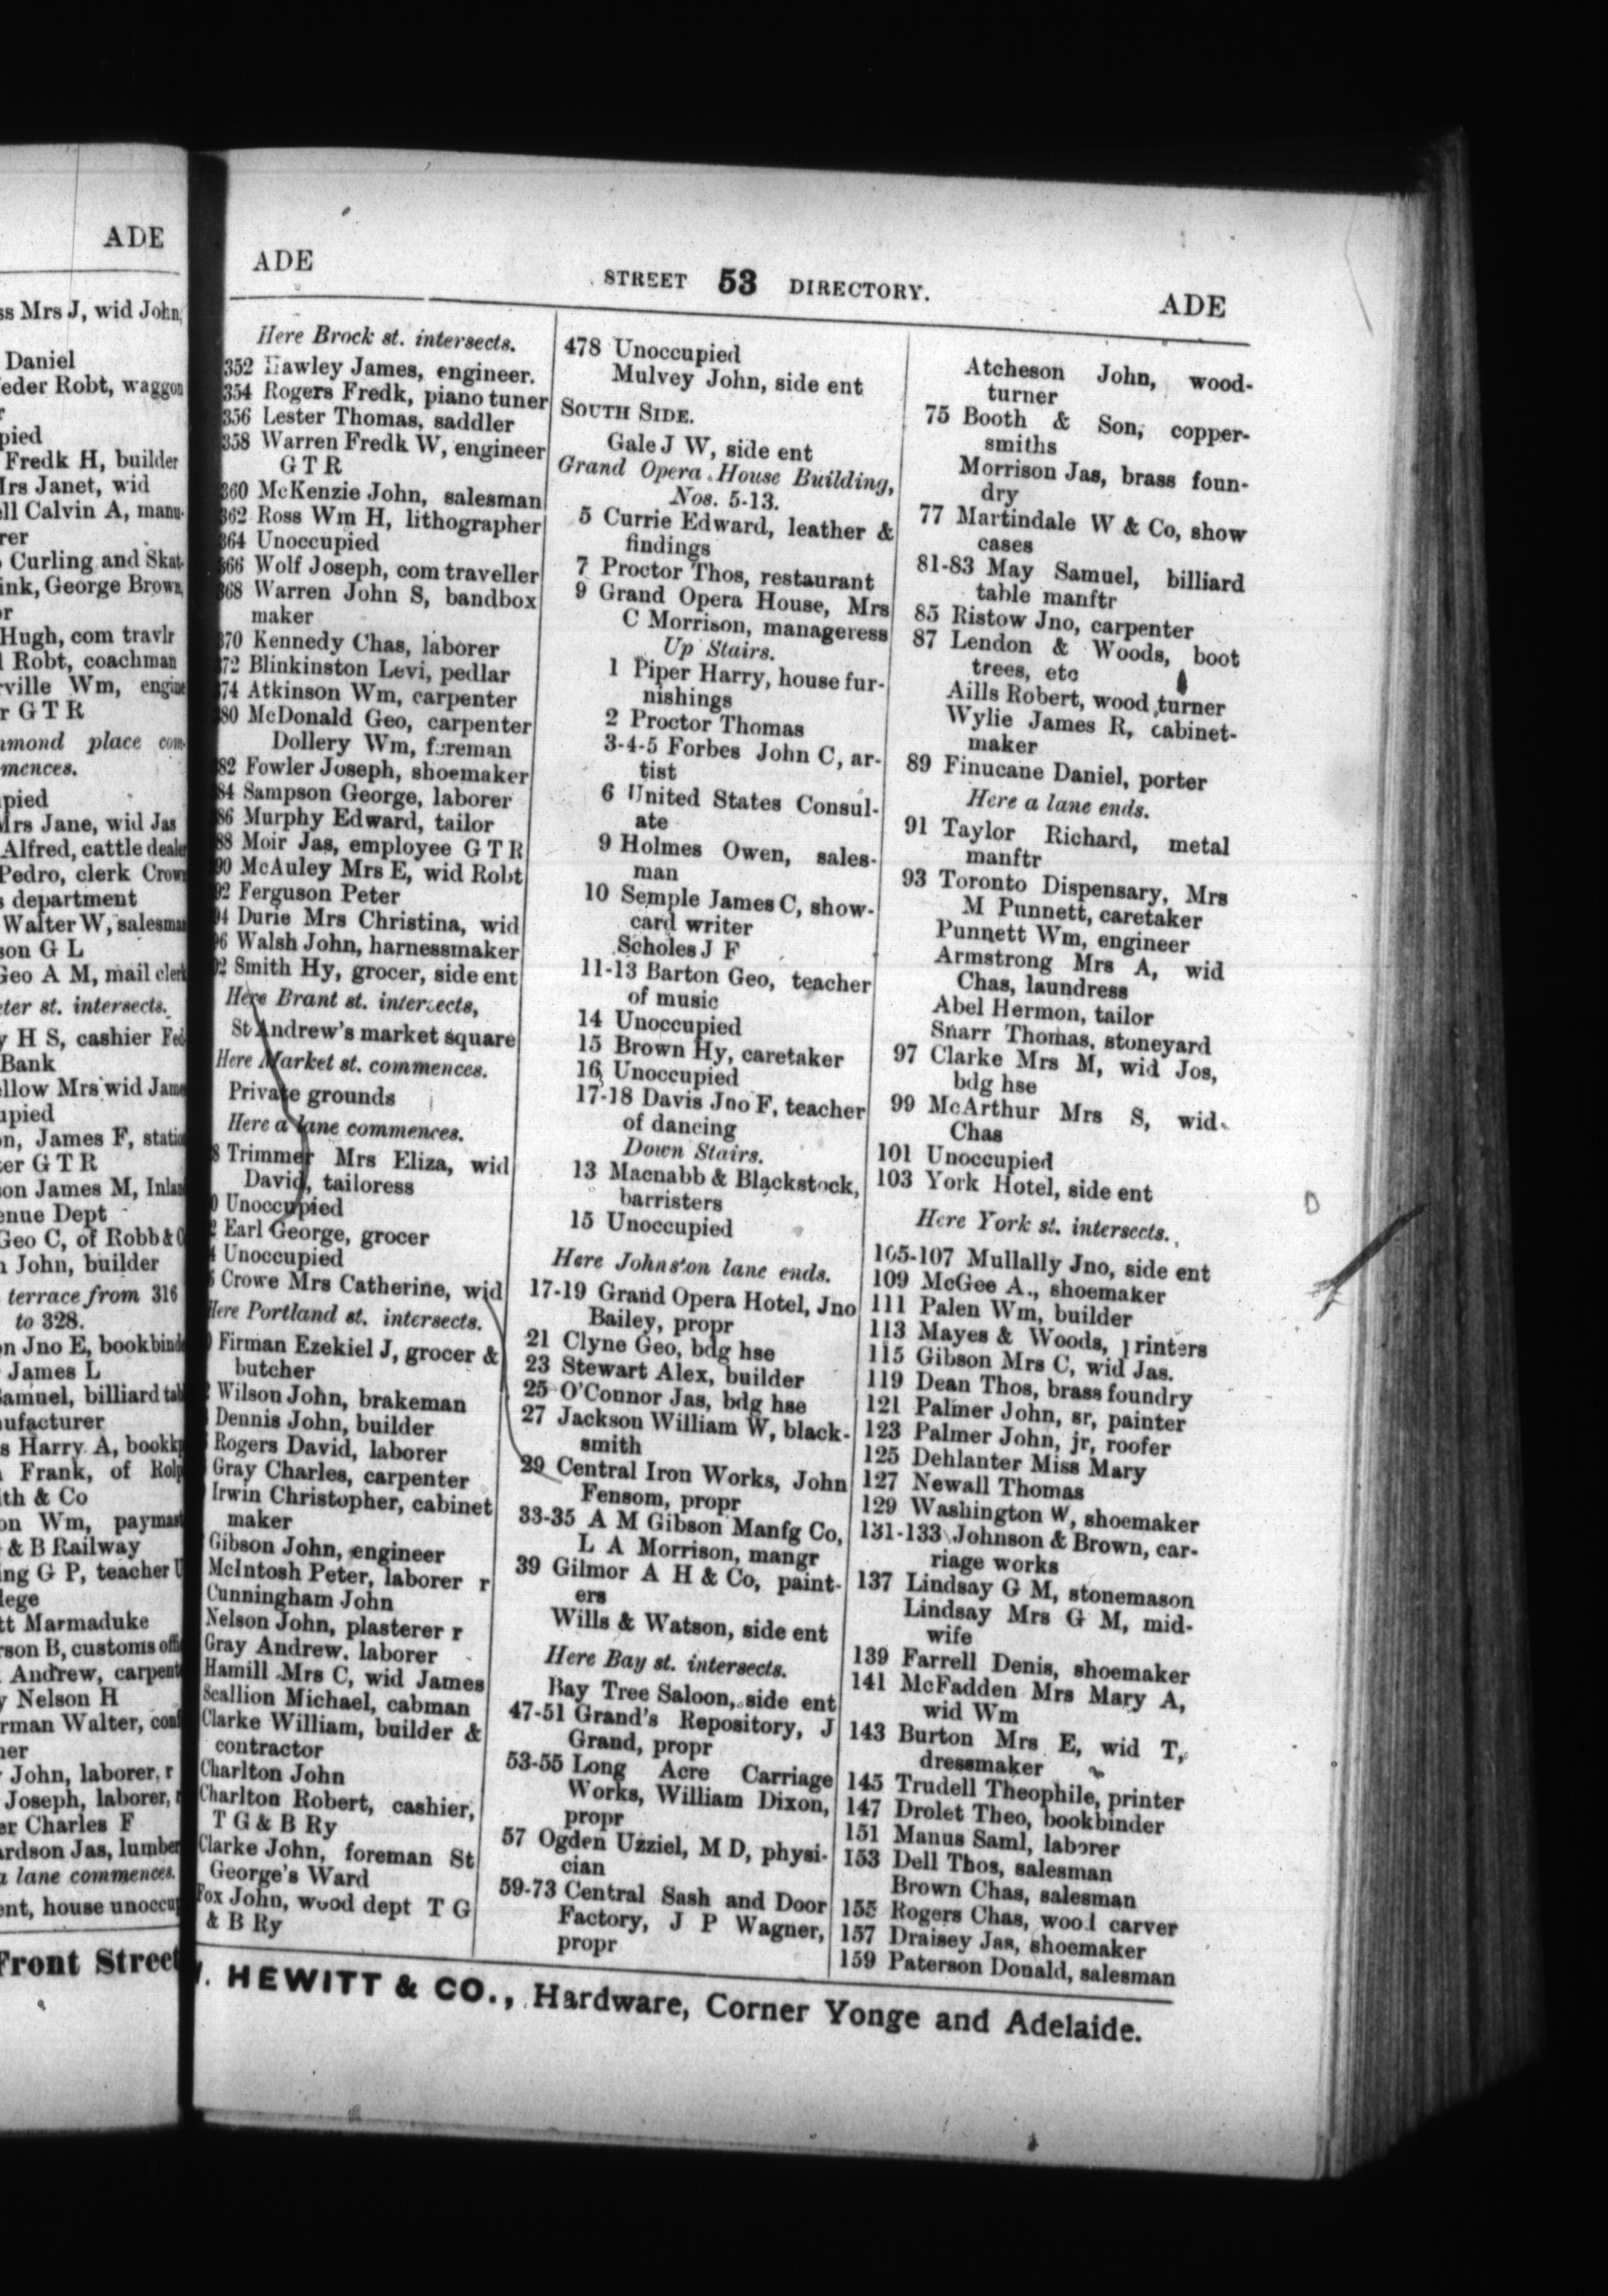 ADE
ss Mrs J, wid John,
Daniel
eder Robt, waggon
pied
Fredk H, builder
Mrs Janet, wid
ll Calvin A, manu-
rer
Curling and Skat-
ink, George Brown,
or
Hugh, com travlr
Robt, coachman
rville Wm, engine
r G T R
mmond place com-
mences.
pied
Mrs Jane, wid Jas
Alfred, cattle dealer
Pedro, clerk Crown
s department
Walter W, salesman
son G L
Geo A M, mail clerk
eter st. intersects.
y H S, cashier Fed
Bank
ellow Mrs wid James
upied
on, James F, statio
ter G T R
on James M, Inlan
enue Dept
Geo C, of Robb &
n John, builder
terrace from 316
to 328.
on Jno E, bookbinde
James L
Samuel, billiard tab
nufacturer
s Harry A, bookk
Frank, of Rolp
ith & Co
on Wm, paymast
& B Railway
ing G P, teacher U
lege
tt Marmaduke
rson B, customs offi
Andrew, carpent
y Nelson H
rman Walter, conf
ner
John, laborer, r
Joseph, laborer,
er Charles F
ardson Jas, lumber
a lane commences.
ent, house unoccup
Front Street
ADE
STREET 53 DIRECTORY.
ADE
Here Brock st. intersects.
352 Hawley James, engineer.
354 Rogers Fredk, piano tuner
356 Lester Thomas, saddler
358 Warren Fredk W, engineer
G T R
360 McKenzie John, salesman
362 Ross Wm H, lithographer
364 Unoccupied
366 Wolf Joseph, com traveller
368 Warren John S, bandbox
maker
370 Kennedy Chas, laborer
372 Blinkinston Levi, pedlar
374 Atkinson Wm, carpenter
380 McDonald Geo, carpenter
Dollery Wm, foreman
82 Fowler Joseph, shoemaker
84 Sampson George, laborer
86 Murphy Edward, tailor
88 Moir Jas, employee G T R
90 McAuley Mrs E, wid Robt
92 Ferguson Peter
94 Durie Mrs Christina, wid
96 Walsh John, harnessmaker
02 Smith Hy, grocer, side ent
Here Brant st. intersects,
St Andrew's market square
Here Market st. commences.
Private grounds
Here a lane commences.
8 Trimmer Mrs Eliza, wid
David, tailoress
0 Unoccupied
2 Earl George, grocer
4 Unoccupied
6 Crowe Mrs Catherine, wid
Here Portland st. intersects.
Firman Ezekiel J, grocer &
butcher
Wilson John, brakeman
Dennis John, builder
Rogers David, laborer
Gray Charles, carpenter
Irwin Christopher, cabinet
maker
Gibson John, engineer
McIntosh Peter, laborer r
Cunningham John
Nelson John, plasterer r
Gray Andrew, laborer
Hamill Mrs C, wid James
Scallion Michael, cabman
Clarke William, builder &
contractor
Charlton John
Charlton Robert, cashier,
T G & B Ry
Clarke John, foreman St
George's Ward
Fox John, wood dept T G
& B Ry
478 Unoccupied
Mulvey John, side ent
SOUTH SIDE.
Gale J W, side ent
Grand Opera House Building,
Nos. 5-13.
5 Currie Edward, leather &
findings
7 Proctor Thos, restaurant
9 Grand Opera House, Mrs
C Morrison, manageress
Up Stairs.
1 Piper Harry, house fur-
nishings
2 Proctor Thomas
3-4-5 Forbes John C, ar-
tist
6 United States Consul-
ate
9 Holmes Owen, sales-
man
10 Semple James C, show-
card writer
Scholes J F
11-13 Barton Geo, teacher
of music
14 Unoccupied
15 Brown Hy, caretaker
16 Unoccupied
17-18 Davis Jno F, teacher
of dancing
Down Stairs.
13 Macnabb & Blackstock,
barristers
15 Unoccupied
Here Johnston lane ends.
17-19 Grand Opera Hotel, Jno
Bailey, propr
21 Clyne Geo, bdg hse
23 Stewart Alex, builder
25 O'Connor Jas, bdg hse
27 Jackson William W, black-
smith
29 Central Iron Works, John
Fensom, propr
33-35 A M Gibson Manfg Co,
L A Morrison, mangr
39 Gilmor A H & Co, paint-
ers
Wills & Watson, side ent
Here Bay st. intersects.
Bay Tree Saloon, side ent
47-51 Grand's Repository, J
Grand, propr
53-55 Long Acre Carriage
Works, William Dixon,
propr
57 Ogden Uzziel, M D, physi-
cian
59-73 Central Sash and Door
Factory, J P Wagner,
propr
Atcheson John, wood-
turner
75 Booth & Son, copper-
smiths
Morrison Jas, brass foun-
dry
77 Martindale W & Co, show
cases
81-83 May Samuel, billiard
table manftr
85 Ristow Jno, carpenter
87 Lendon & Woods, boot
trees, etc
Aills Robert, wood turner
Wylie James R, cabinet-
maker
89 Finucane Daniel, porter
Here a lane ends.
91 Taylor Richard, metal
manftr
93 Toronto Dispensary, Mrs
M Punnett, caretaker
Punnett Wm, engineer
Armstrong Mrs A, wid
Chas, laundress
Abel Hermon, tailor
Snarr Thomas, stoneyard
97 Clarke Mrs M, wid Jos,
bdg hse
99 McArthur Mrs S, wid
Chas
101 Unoccupied
103 York Hotel, side ent
Here York st. intersects.
105-107 Mullally Jno, side ent
109 McGee A., shoemaker
111 Palen Wm, builder
113 Mayes & Woods, printers
115 Gibson Mrs C, wid Jas.
119 Dean Thos, brass foundry
121 Palmer John, sr, painter
123 Palmer John, jr, roofer
125 Dehlanter Miss Mary
127 Newall Thomas
129 Washington W, shoemaker
131-133 Johnson & Brown, car-
riage works
137 Lindsay G M, stonemason
Lindsay Mrs G M, mid-
wife
139 Farrell Denis, shoemaker
141 McFadden Mrs Mary A,
wid Wm
143 Burton Mrs E, wid T,
dressmaker
145 Trudell Theophile, printer
147 Drolet Theo, bookbinder
151 Manus Saml, laborer
153 Dell Thos, salesman
Brown Chas, salesman
155 Rogers Chas, wood carver
157 Draisey Jas, shoemaker
159 Paterson Donald, salesman
. HEWITT & CO., Hardware, Corner Yonge and Adelaide.